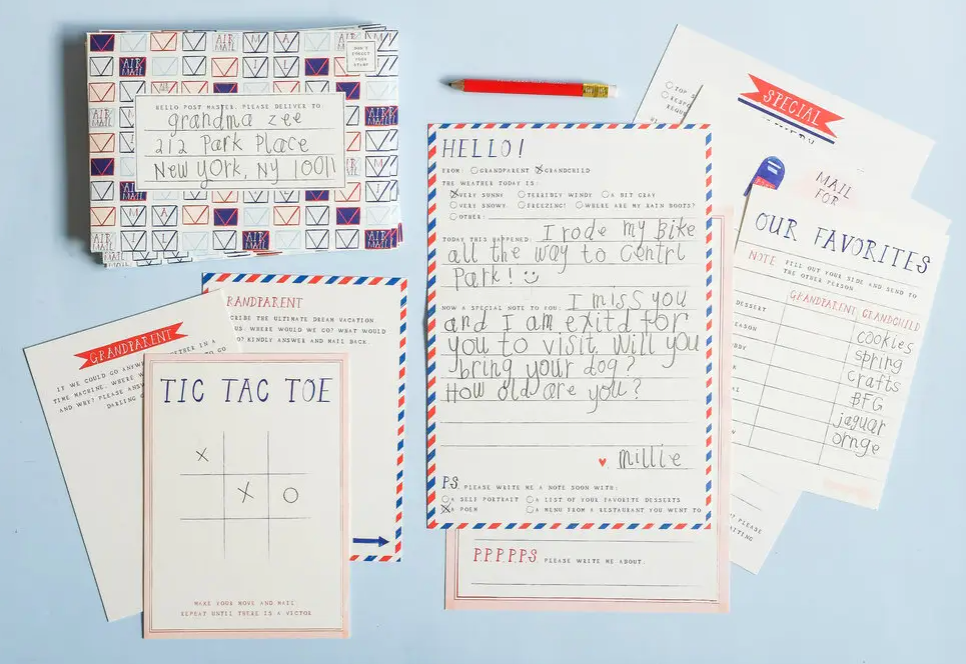 DON'T
FORGET
YOUR
STAMP
AIR MAIL
HELLO POST MASTER, PLEASE DELIVER TO:
grandma zee
212 Park Place
New York, NY 10011
GRANDPARENT
TIC TAC TOE
X
X O
MAKE YOUR MOVE AND MAIL.
REPEAT UNTIL THERE IS A VICTOR
GRANDPARENT
SCRIBE THE ULTIMATE DREAM VACATION
US: WHERE WOULD WE GO? WHAT WOULD
O? KINDLY ANSWER AND MAIL BACK.
HELLO!
FROM: GRANDPARENT GRANDCHILD
THE WEATHER TODAY IS:
VERY SUNNY TERRIBLY WINDY A BIT GRAY
VERY SNOWY FREEZING! WHERE ARE MY RAIN BOOTS?
OTHER:
TODAY THIS HAPPENED: I rode my Bike
all the way to Centrl
Park!
NOW A SPECIAL NOTE TO YOU: I miss you
and I am exitd for
you to visit. Will you
bring your dog?
How old are you?
Millie
P.S. PLEASE WRITE ME A NOTE SOON WITH:
A SELF PORTRAIT A LIST OF YOUR FAVORITE DESSERTS
A POEM A MENU FROM A RESTAURANT YOU WENT TO
P.P.P.P.P.S. PLEASE WRITE ME ABOUT:
SPECIAL
MAIL
FOR
OUR FAVORITES
NOTE FILL OUT YOUR SIDE AND SEND TO
THE OTHER PERSON
GRANDPARENT GRANDCHILD
DESSERT cookies
EASON spring
crafts
BFG
jaguar
ornge